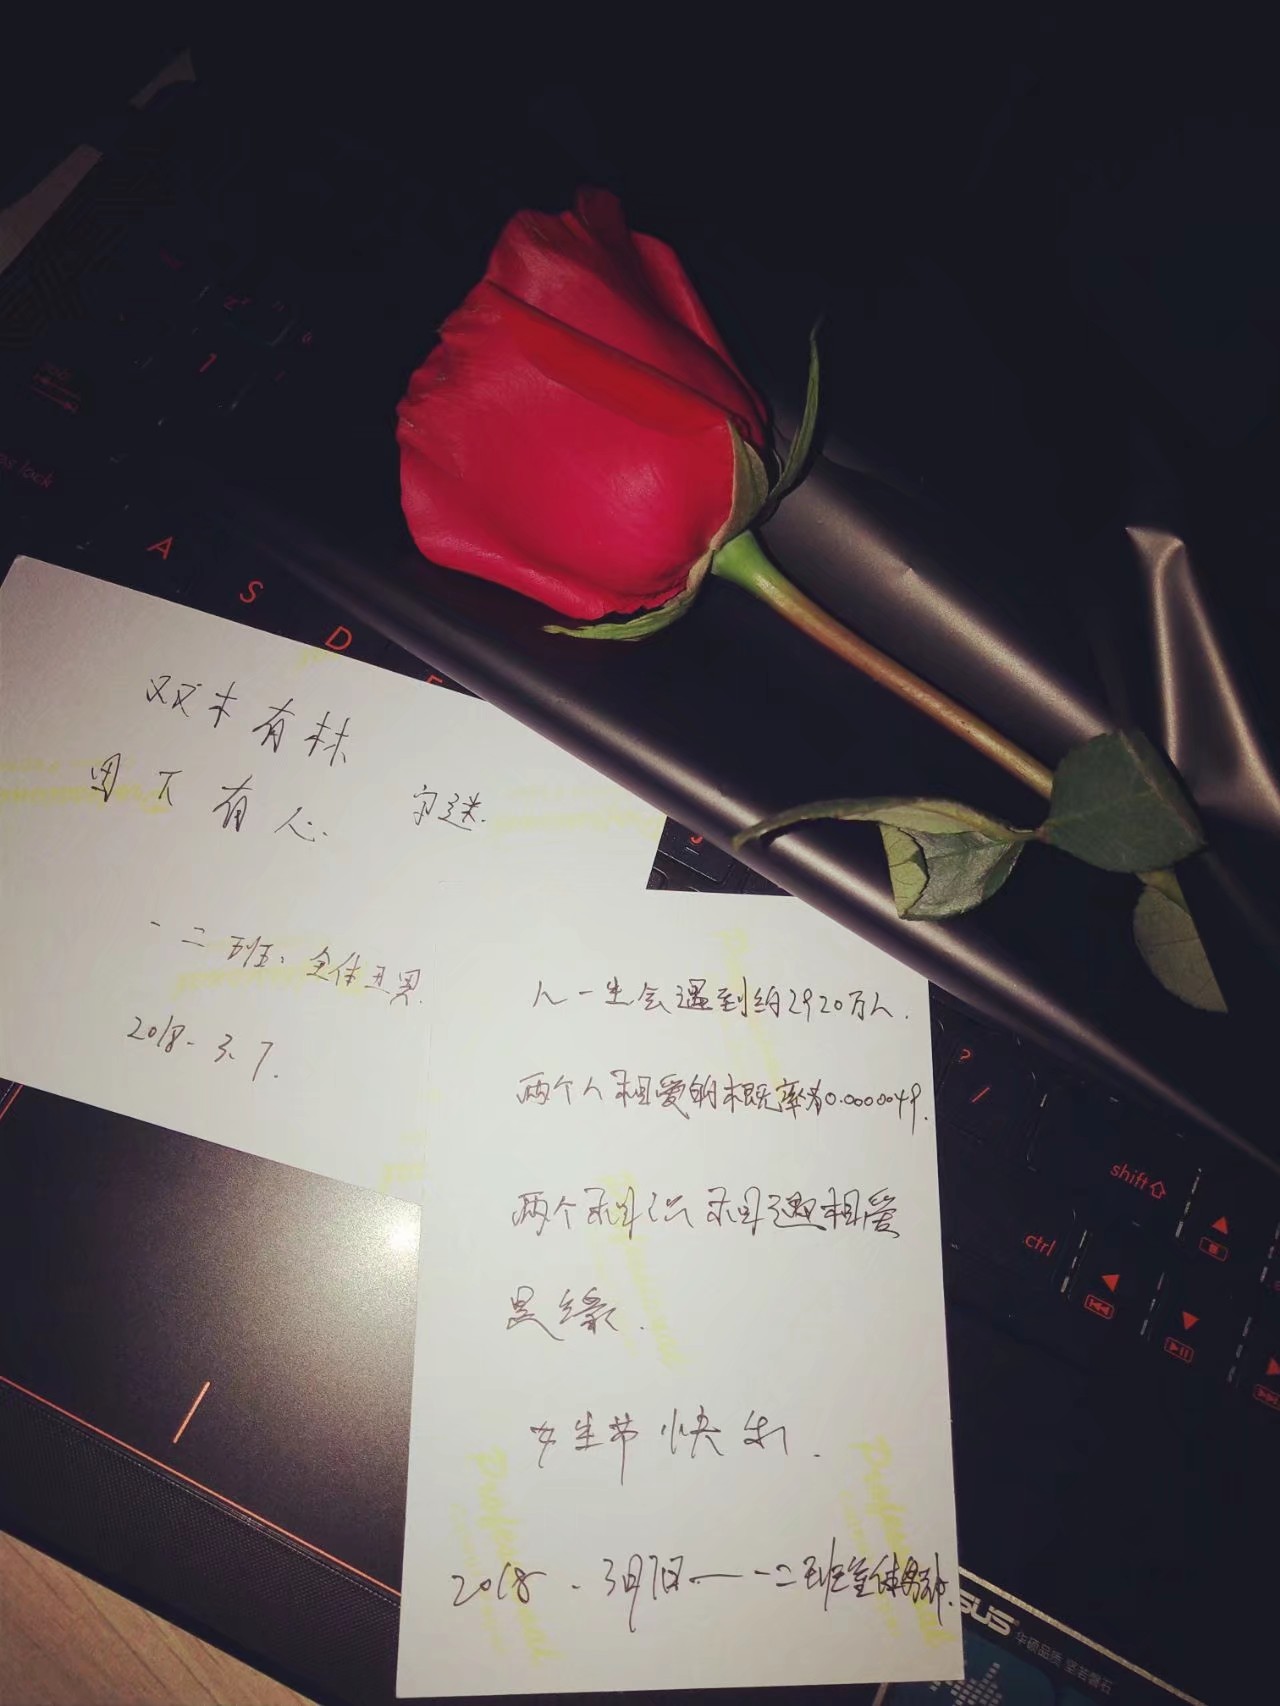 双木有林
因下有心
字迷.
一二班:全体丑男.
2018.3.7.
人一生会遇到约2920万人.
两个人相爱的概率为0.0000049.
两个相识相遇相爱
是缘.
女生节快乐.
2018.3月7日.——一二班全体男神.
A
S
D
F
?
/
shift
ctrl
SUS 华硕品质 坚若磐石